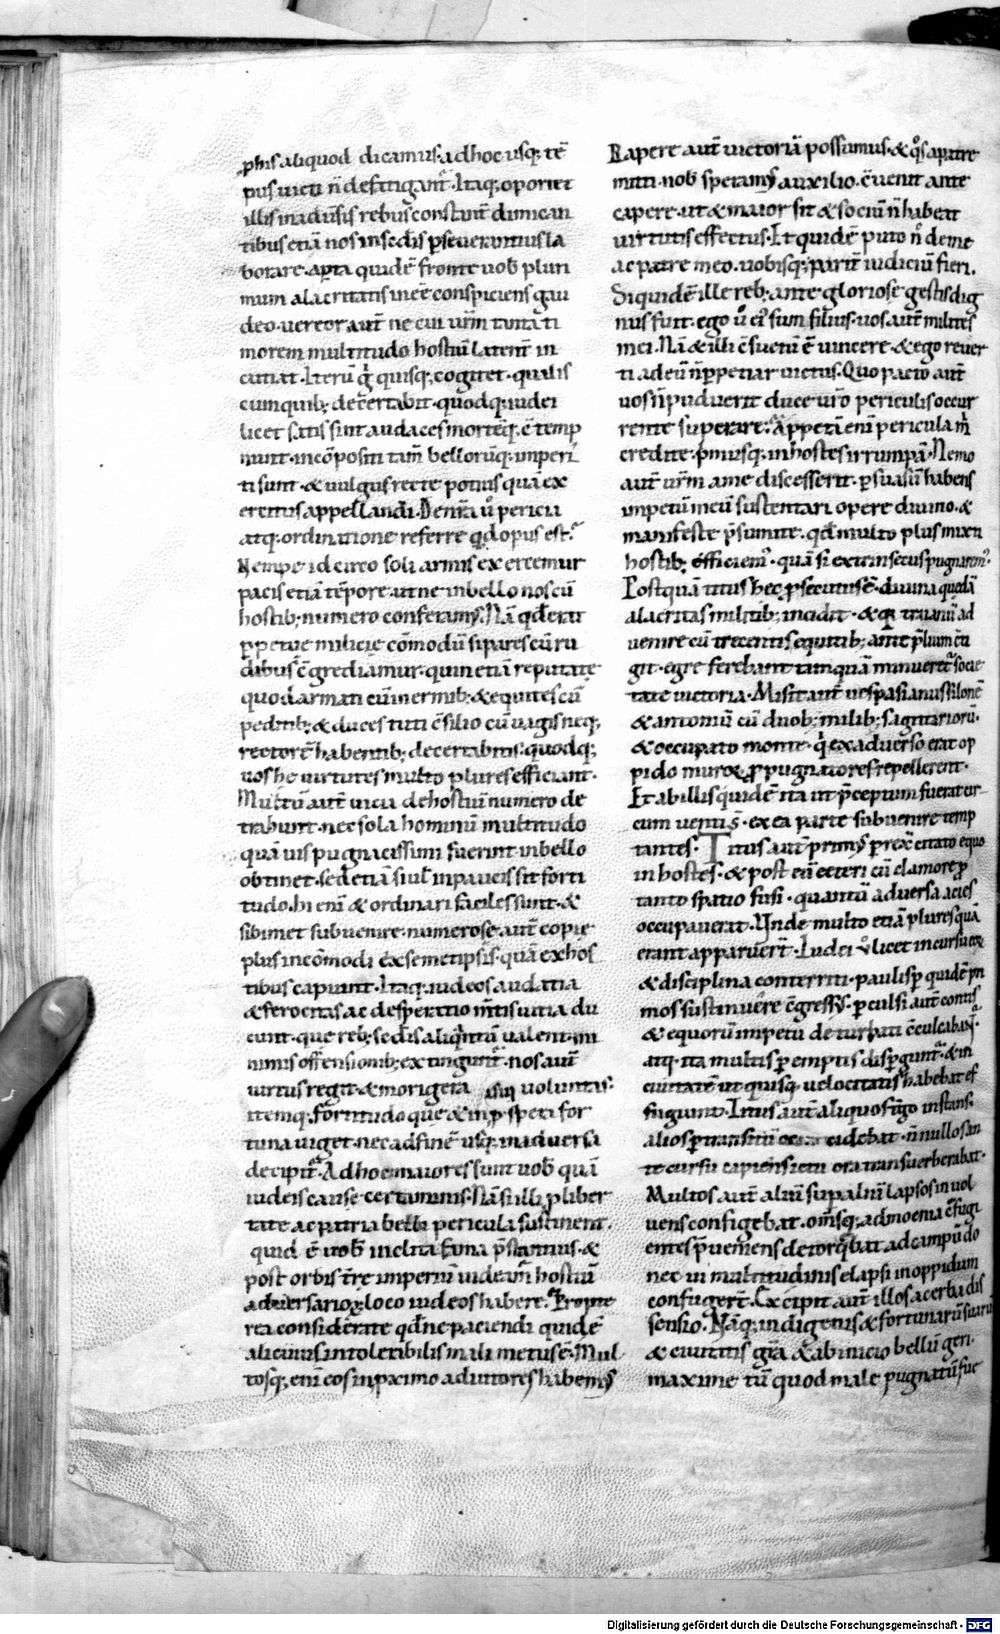 phis aliquod dicamus. adhoc usq; tē
pus uicti n̄ defatigant᷑. Itaq; oportet
illis in aduersis rebus constant᷑ dimican
tibus etiā nos in secūdis pseuerantius la
borare. aperta quidē fronte uob plurī
mum alacritatis inēē conspiciens gau
deo. uereor aut̄ ne cui urm̄ tanta ti
morem multitudo hostiū latent᷑ in
cutiat. Iterū g quisq; cogitet. qualis
cum quib; decertabit. quodq; iudei
licet satis sint audaces morteq; cōtemp
nant. incōpositi tam̄ bellorūq; imperi
ti sunt. & uulgus recte potius quā ex
ercitus appellandi. De nr̄a ū pericia
atq; ordinatione referre qd opus est?
Nempe idcirco soli armis exercemur
pacis etiā tēpore. ut ne in bello nos cū
hostib; numero conferamus. Nā qd erit
ppetue milicie cōmodū si pares cū ru
dibus cōgrediamur. quin etiā reputate
quod armati cū inermib; & equites cū
peditib; & duces tuti cōsilio cū uagis neq;
rectorē habentib; decertabitis. quodq;
uos he uirtutes multo plures efficiant.
Multū aut̄ uicia de hostiū numero de
trahunt. nec sola hominū multitudo
quāuis pugnacissimi fuerint in bello
obtinet. sed etiā si uł in paucis sit forti
tudo. hi enī & ordinari faciles sunt. &
sibimet subuenire. numerose aut̄ copie
plus incōmodi ex semetipsis. quā ex hos
tibus capiunt. Itaq; iudeos audatia
& ferocitas ac desperatio mtis uitia du
cunt. que reb; secūdis aliqntū ualent. mi
nimis offensionib; extingunt᷑. nos aut̄
uirtus regit & morigera uoluntas.
itemq; fortitudo que & in pspeti for
tuna uiget. nec ad finē usq; in aduersa
decipit᷑. Ad hoc maiores sunt uob quā
iudeis cause certaminis. Nā si illi p liber
tate ac patria belli pericula sustinent.
quid ē uob inclita fama pstantius. &
post orbis tr̄e imperiū uideam̄ hostiū
aduersariorꝝ loco iudeos habere? Propte
rea considerate qd ne paciendi quidē
alicuius intoletibilis mali metus ē. Mul
tosq; enī eos in pximo adiutores habemus
Rapere aut̄ uictoriā possumus. & qs a patre
mitti nob speramus auxilio. cōuenit ante
capere. ut & maior sit & sociū n̄ habeat
uirtutis effectus. Et quidē puto nc de me
ac patre meo. uobisq; parit᷑ iudiciū fieri.
Si quidē ille reb; ante gloriose gestis dig
nus fuit. ego ū ei sum filius. uos aut̄ milites
mei. Nā & illi cōsuetū ē uincere. & ego reuer
ti ad eū n̄ ppetiar uictus. Quo pacto aut̄
uos n̄ puduerit duce uro periculis occur
rente superare? Appetā enī pericula m̄
credite. pmusq; in hostes irrumpā. Nemo
aut̄ urm̄ a me discesserit. psuasū habens
impetū meū sustentari opere diuino. &
manifeste psumite. qd multo plus mixti
hostib; efficiem᷑. quā si extrinsecus pugnarem᷑.
Postquā titus hec psecutus ē. diuina quedā
alacritas militib; incidit. & q traianū ad
uenire cū trecentis equitib; ante plium cōti
git. egre ferebant tanquā minueret᷑ socie
tate uictoria. Misit aut̄ uespasianus silonē
& antoniū cū duob; milib; sagitariorū.
& occupato monte. q ex aduerso erat op
pido muroꝝ ppugnatores repellerent.
Et ab illis quidē ita ut pceptum fuerat cir
cum uentis. ex ea parte subuenire temp
tantes. Titus aut̄ primus prexit citato equo
in hostes. & post eū ceteri cū clamore p
tanto spatio fusi. quantū aduersa acies
occupauerat. Unde multo etiā plures quā
erant apparuert̄. Iudei ū licet incursu eoꝝ
& disciplina conterriti. paulisp quidē pri
mos sustinuere cōgressus. pculsi aut̄ contis
& equorū impetu deturbati cōculcabant᷑.
atq; ita multis pemptis dispgunt᷑. & in
ciuitatē ut quisq; uelocitatis habebat ef
fugiunt. Titus aut̄ aliquos tergo instans.
alios ptransitū cedebat. n̄nullos an
te cursū capiens ictu ora transuerberabat.
Multos aut̄ aliū sup aliū lapsos inuol
uens configebat. om̄sq; ad moenia cōfugi
entes puemens detorqbat ad campū do
nec ui multitudinis elapsi in oppidum
confugert̄. Excipit aut̄ illos acerba dis
sensio. Nāq; indigenis & fortunarū suarū
& ciuitatis gr̄a & ab inicio bellū geri.
maxime tū quod male pugnatū fue
Digitalisierung gefördert durch die Deutsche Forschungsgemeinschaft - DFG